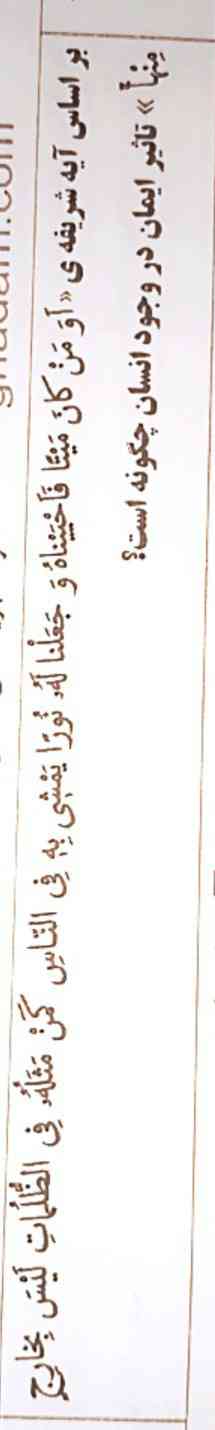 بر اساس آیه شریفه ی «اَوَ مَنْ کانَ مَیْتًا فَاَحْیَیْناهُ وَ جَعَلْنا لَهُ نُورًا یَمْشی بِهِ فِی النّاسِ کَمَنْ مَثَلُهُ فِی الظُّلُماتِ لَیْسَ بِخارِجٍ
مِنْها» تاثیر ایمان در وجود انسان چگونه است؟